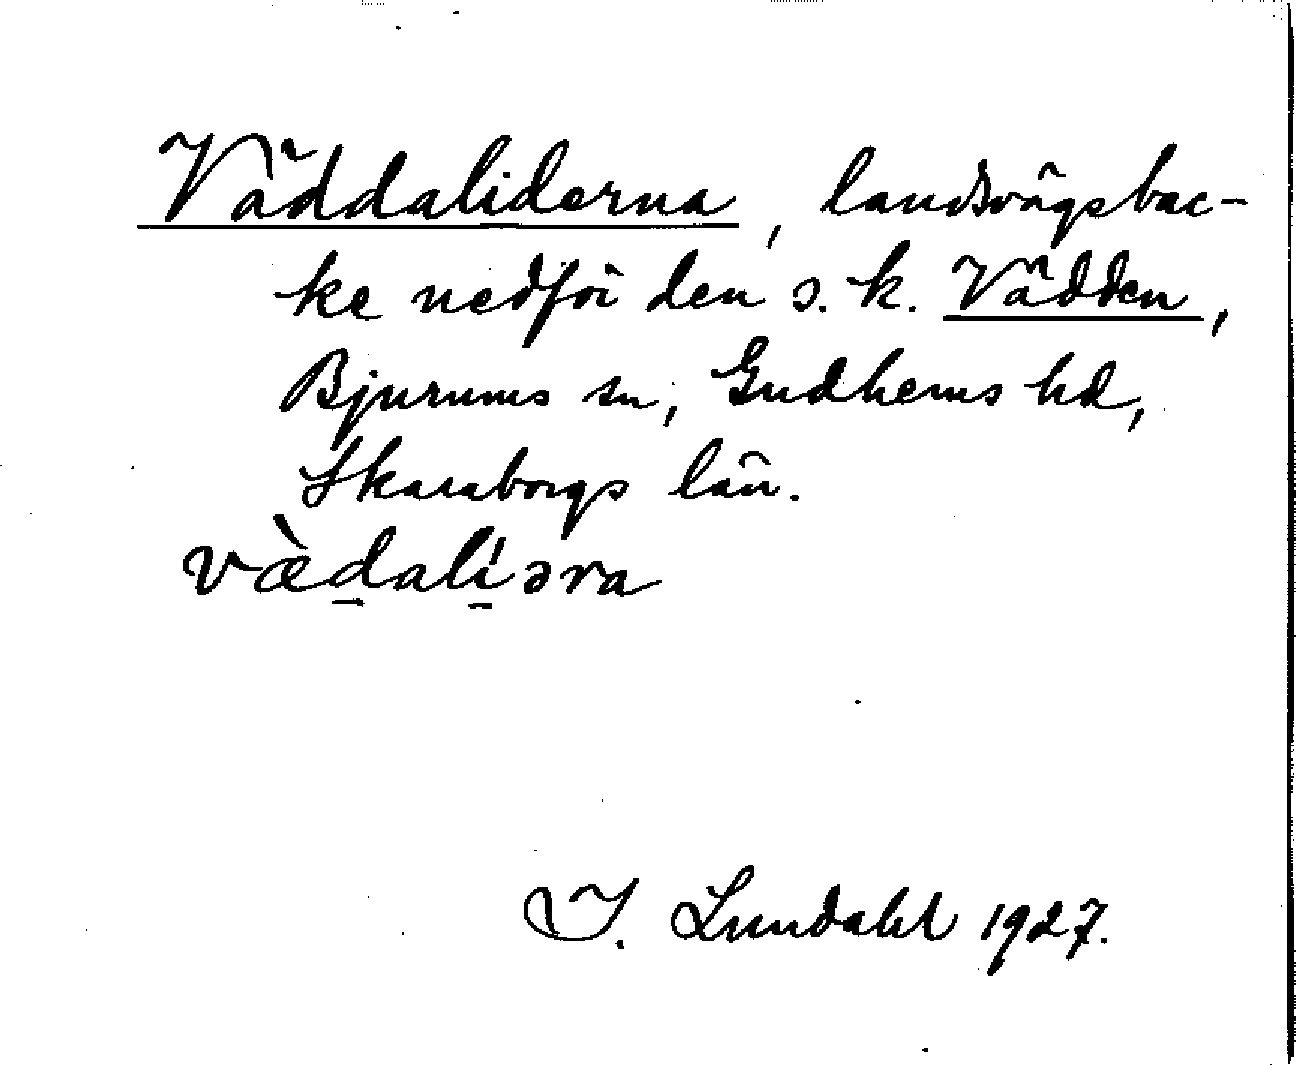 Väddaliderna, landsvägsbac-
ke nedför den s. k. Vädden,
Bjurums sn, Gudhems hd,
Skaraborgs län.
væ̀d̠alí̠əra
I. Lundahl 1927.